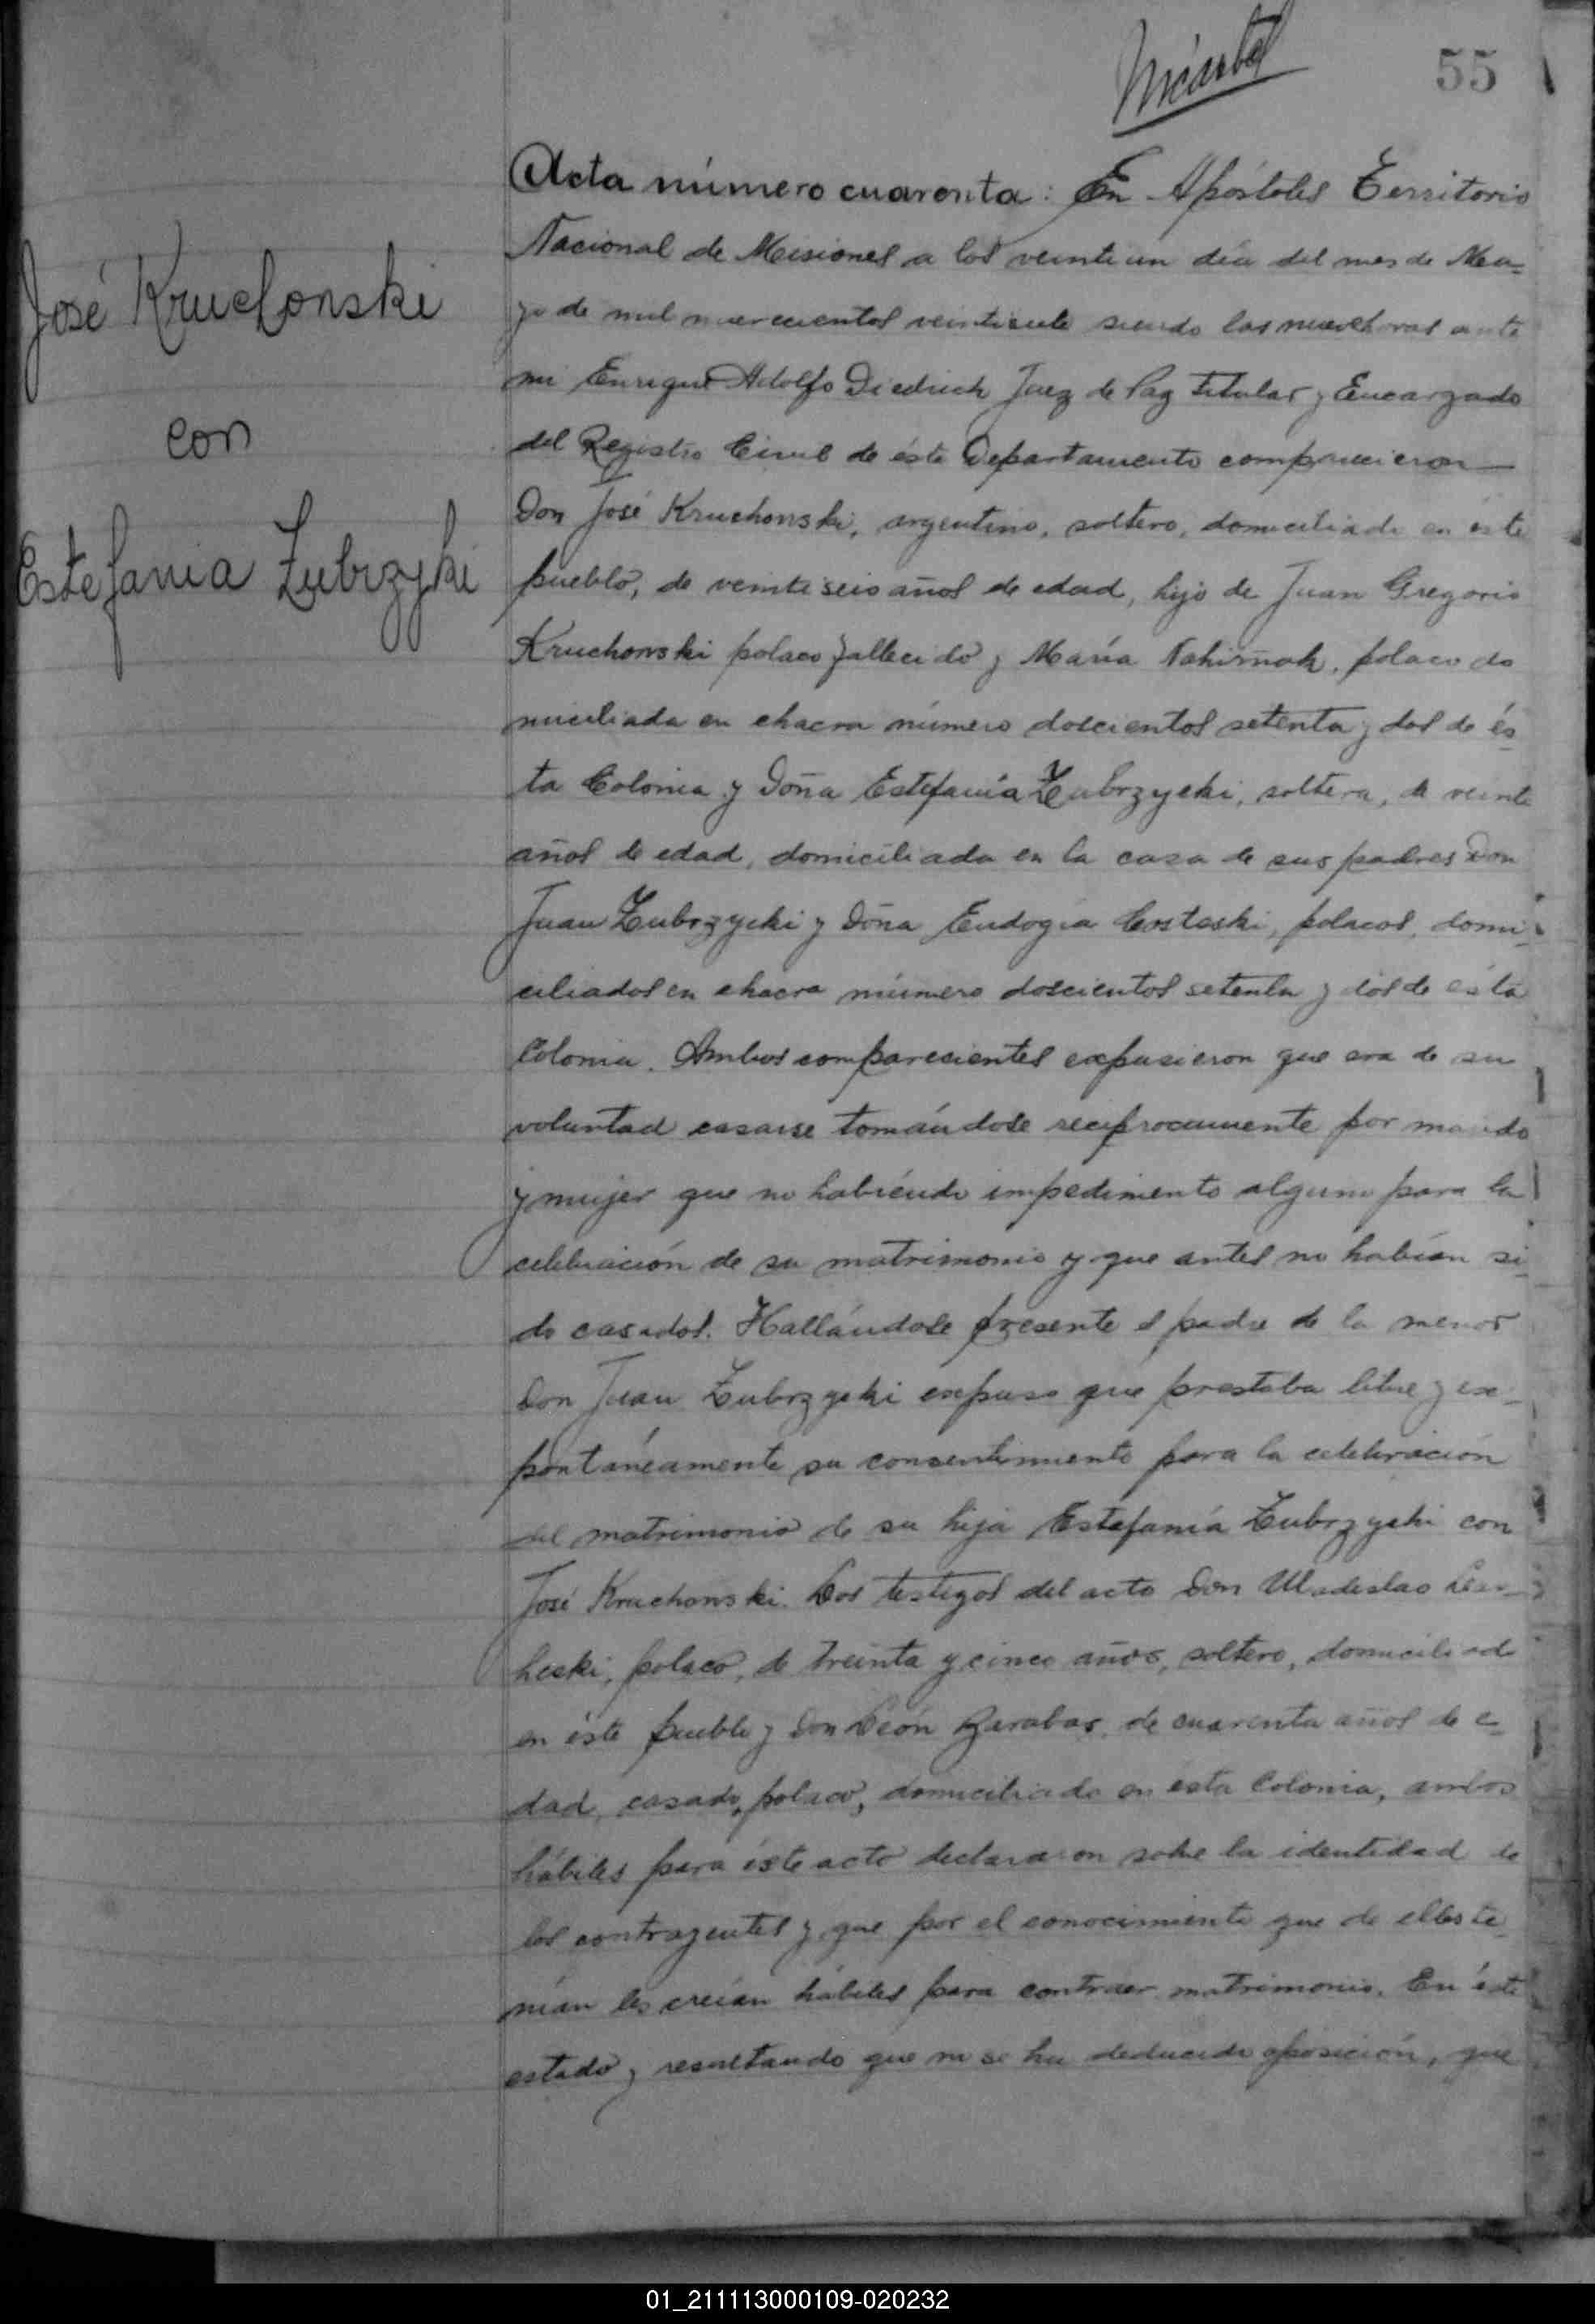 55
Acta número cuarenta: En Apóstoles Territorio
Nacional de Misiones a los veinte un día del mes de Ma-
yo de mil novecientos veintisiete siendo las nueve horas ante
mi Enrique Adolfo Diedrich Juez de Paz titular y Encargado
del Registro Civil de éste Departamento comparecieron
José Kruchonski
con
Estefania Zubrzyki
Don José Kruchonski, argentino, soltero, domiciliado en éste
pueblo, de veinte seis años de edad, hijo de Juan Gregorio
Kruchonski polaco fallecido y María, polaca do
miciliada en chacra número doscientos setenta y dos de és-
ta Colonia y Doña Estefanía Zubrzycki, soltera, de veinte
años de edad, domiciliada en la casa de sus padres Don
Juan Zubrzycki y Doña Eudogia Costeski, polacos, domi-
ciliados en chacra número doscientos setenta y dos de ésta
Colonia. Ambos comparecientes expusieron que era de su
voluntad casarse tomándose reciprocamente por marido
y mujer que no habiéndo impedimento alguno para la
celebración de su matrimonio y que antes no habían si-
do casados. Hallándose presente el padre de la menor
Don Juan Zubrzycki expuso que prestaba libre y ex-
pontáneamente su consentimiento para la celebración
del matrimonio de su hija Estefanía Zubrzycki con
José Kruchonski. Los testigos del acto Don Uladeslao
heski, polaco, de treinta y cinco años, soltero, domiciliado
en éste pueblo y Don León Zarabas, de cuarenta años de e-
dad, casado, polaco, domiciliado en ésta Colonia, ambos
hábiles para éste acto declararon sobre la identidad de
los contrayentes y que por el conocimiento que de ellos te-
nían los creían hábiles para contraer matrimonio. En éste
estado y resultando que no se ha deducido oposición, que
01_211113000109-020232